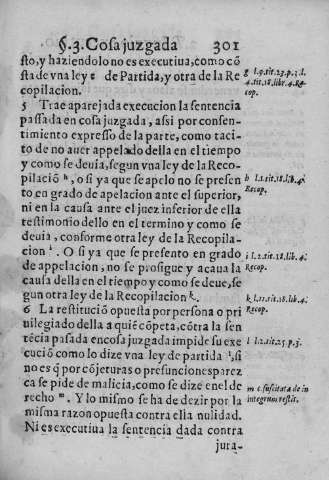 §.3. Cosa juzgada 301
sto, y haziendolo no es executiua, como cõ
sta de vna ley e de Partida, y otra de la Re
copilacion.
g l.9.tit.23.p.3.l.
4.tit.18.libr.4.Re
cop.
5 Trae aparejada execucion la sentencia
passada en cosa juzgada, assi por consen-
timiento expresso de la parte, como taci-
to de no auer appelado della en el tiempo
y como se deuia, segun vna ley de la Reco-
pilaciõ h, o si ya que se apelo no se presen
to en grado de apelacion ante el superior,
ni en la causa ante el juez inferior de ella
testimonio dello en el termino y como se
deuia, conforme otra ley de la Recopila-
cion i. O si ya que se presento en grado
de appelacion, no se prosigue y acaua la
causa della en el tiempo y como se deue, se
gun otra ley de la Recopilacion k.
h l.1.tit.18.lib.4.
Recop.
i l.2.tit.18.lib.4.
Recop.
k l.11.tit.18.lib.4.
Recop.
6 La restituciõ opuesta por persona o pri
uilegiado della a quiẽ cõpeta, cõtra la sen
tẽcia passada en cosa juzgada impide su exe
cuciõ como lo dize vna ley de partida l, si
no es q̃ por cõjeturas o presunciones parez
ca se pide de malicia, como se dize en el de
recho m. Y lo mismo se ha de dezir por la
misma razon opuesta contra ella nulidad.
Ni es executiua la sentencia dada contra
l l.2.tit.25.p.3.
m c.suscitata de in
integrum restit.
jura-